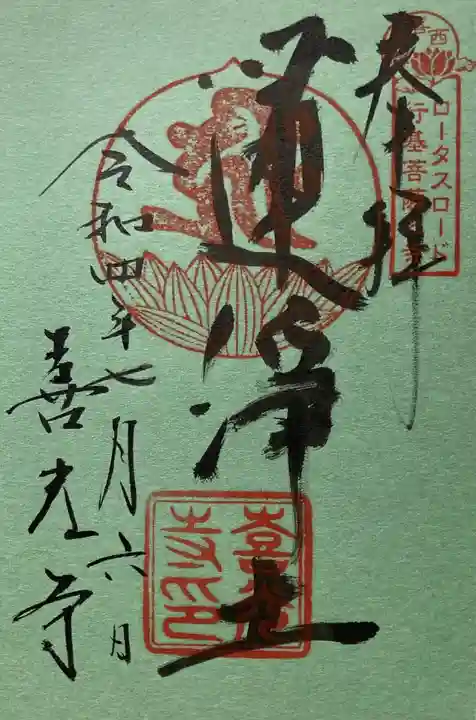 奉拝
西
ロータスロード
行基菩薩
蓮淨土
喜光寺印
令和四年七月六日
喜光寺